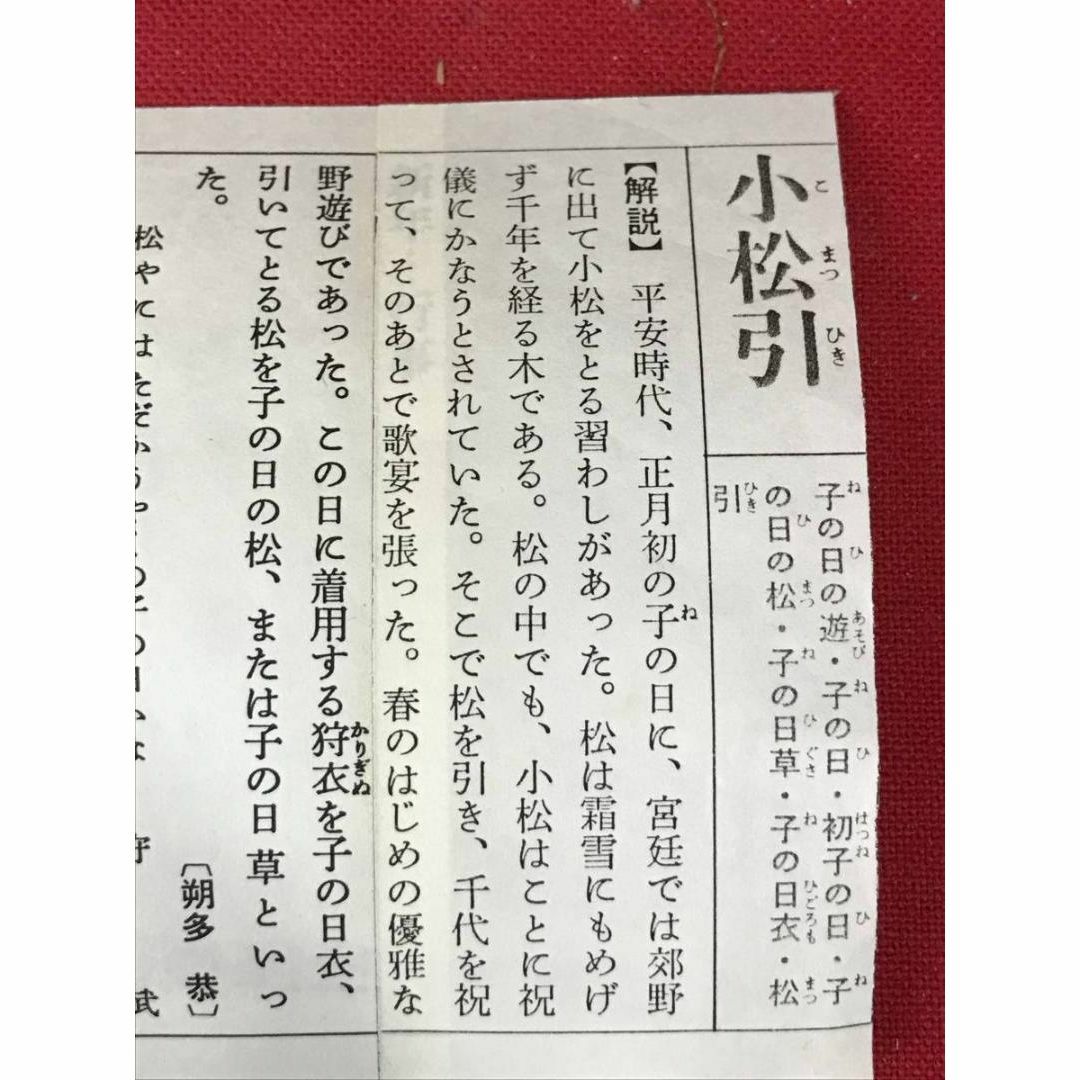 小松引
子の日の遊・子の日・初子の日・子
の日の松・子の日草・子の日衣・松
引
【解説】 平安時代、正月初の子の日に、宮廷では郊野
に出て小松をとる習わしがあった。松は霜雪にもめげ
ず千年を経る木である。松の中でも、小松はことに祝
儀にかなうとされていた。そこで松を引き、千代を祝
って、そのあとで歌宴を張った。春のはじめの優雅な
野遊びであった。この日に着用する狩衣を子の日衣、
引いてとる松を子の日の松、または子の日草といっ
た。
〔朔多 恭〕